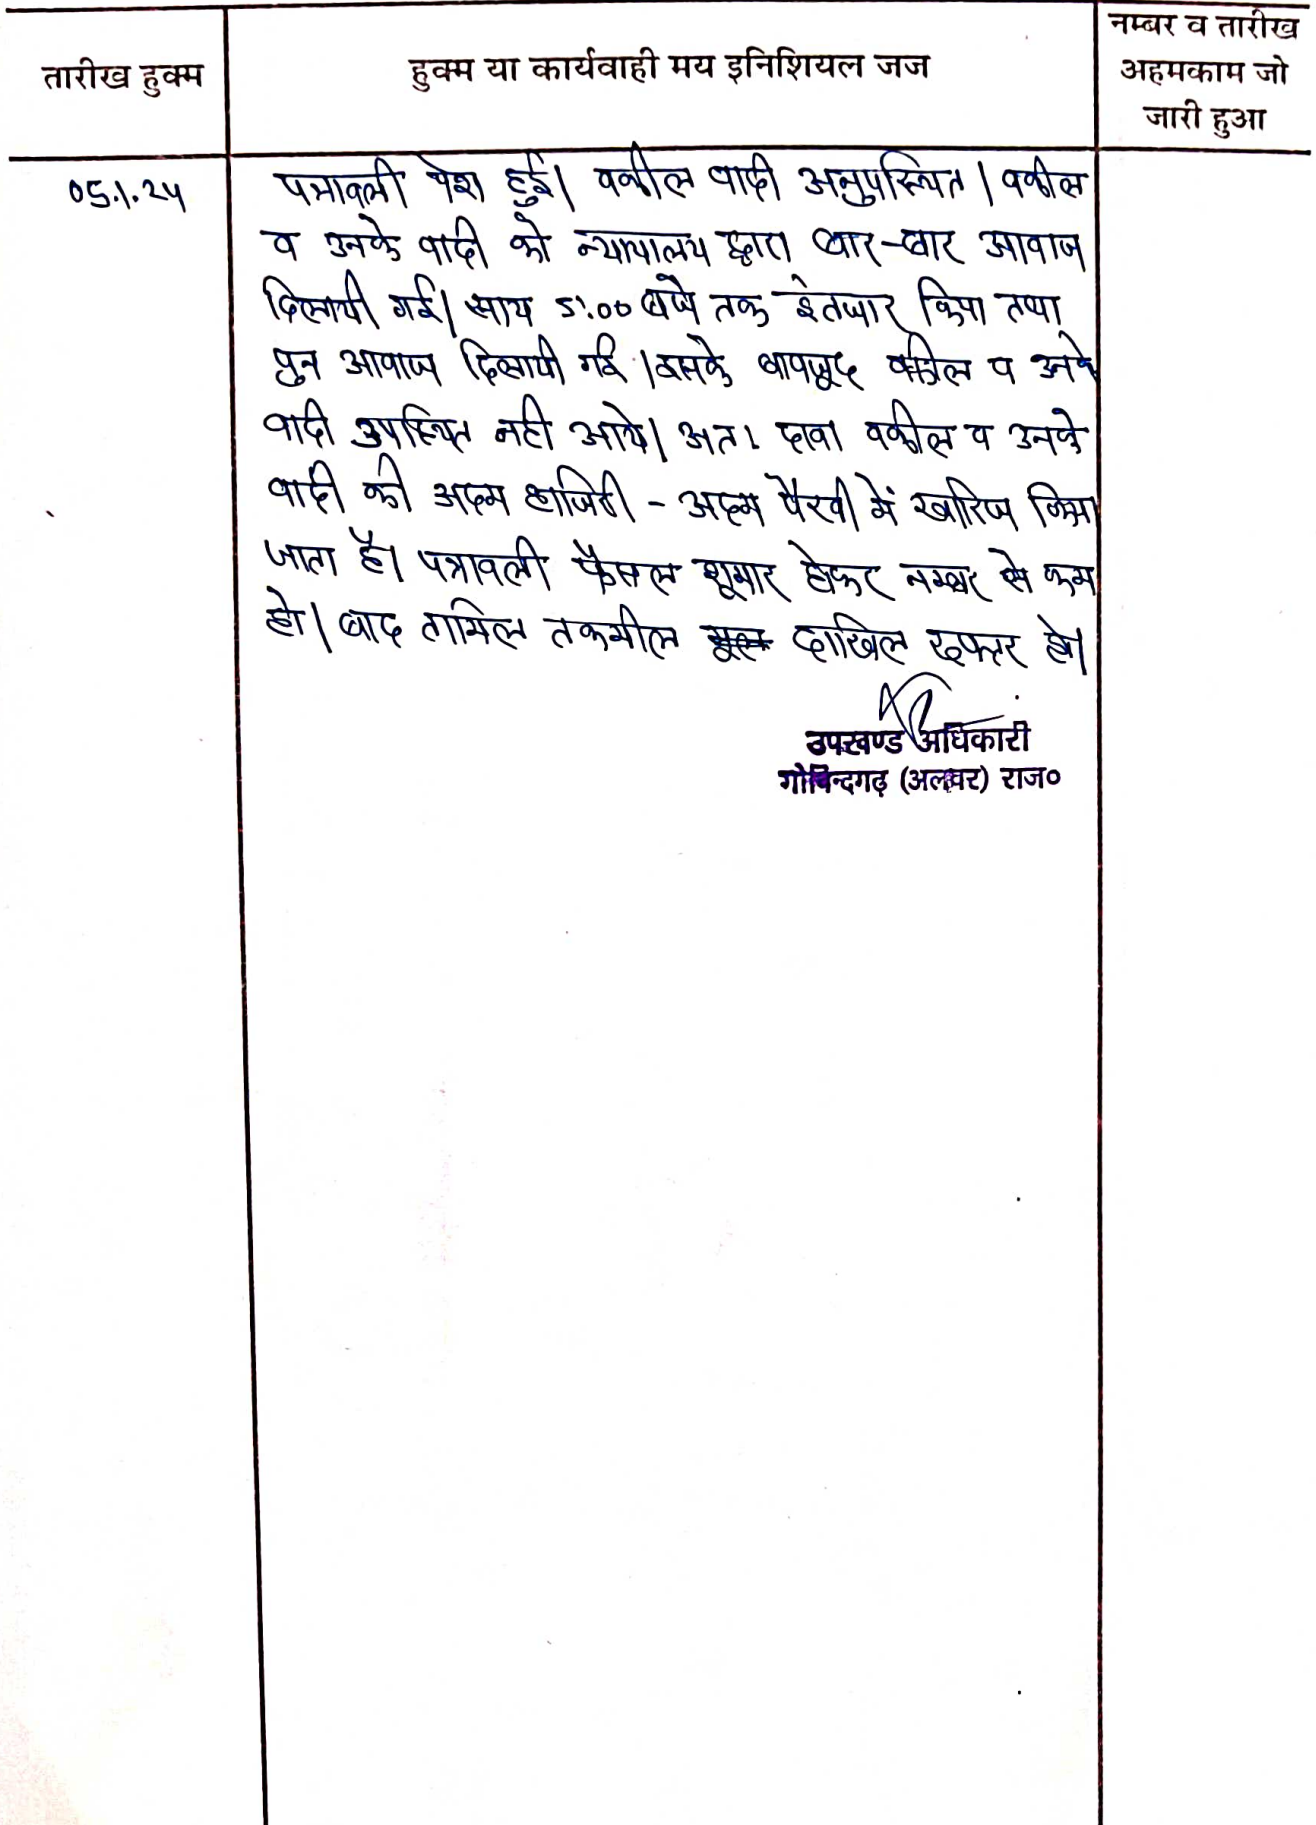 तारीख हुक्म
हुक्म या कार्यवाही मय इनिशियल जज
नम्बर व तारीख
अहमकाम जो
जारी हुआ
05.1.24
पत्रावली पेश हुई। वकील वादी अनुपस्थित। वकील
व उनके वादी को न्यायालय द्वारा बार-बार आवाज
दिलायी गई। साय 5:00 बजे तक इंतजार किया तथा
पुन आवाज दिलायी गई। इसके बावजूद वकील व उनके
वादी उपस्थित नही आये। अत: दावा वकील व उनके
वादी की अदम हाजिरी - अदम पैरवी में खारिज किया
जाता है। पत्रावली फैसल शुमार होकर नम्बर से कम
हो। बाद तामिल तकमील दाखिल दफ्तर हो।
उपखण्ड अधिकारी
गोविन्दगढ़ (अलवर) राज०